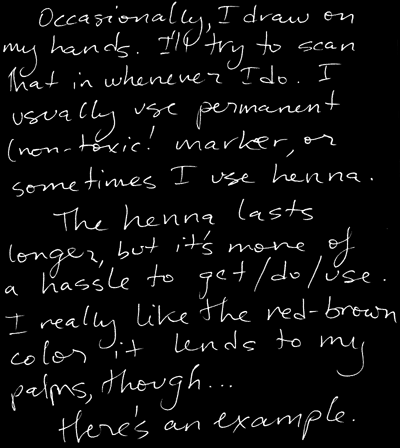 Occasionally, I draw on
my hands. I'll try to scan
that in whenever I do. I
usually use permanent
(non-toxic! marker, or
sometimes I use henna.
The henna lasts
longer, but it's more of
a hassle to get/do/use.
I really like the red-brown
color it lends to my
palms, though...
Here's an example.